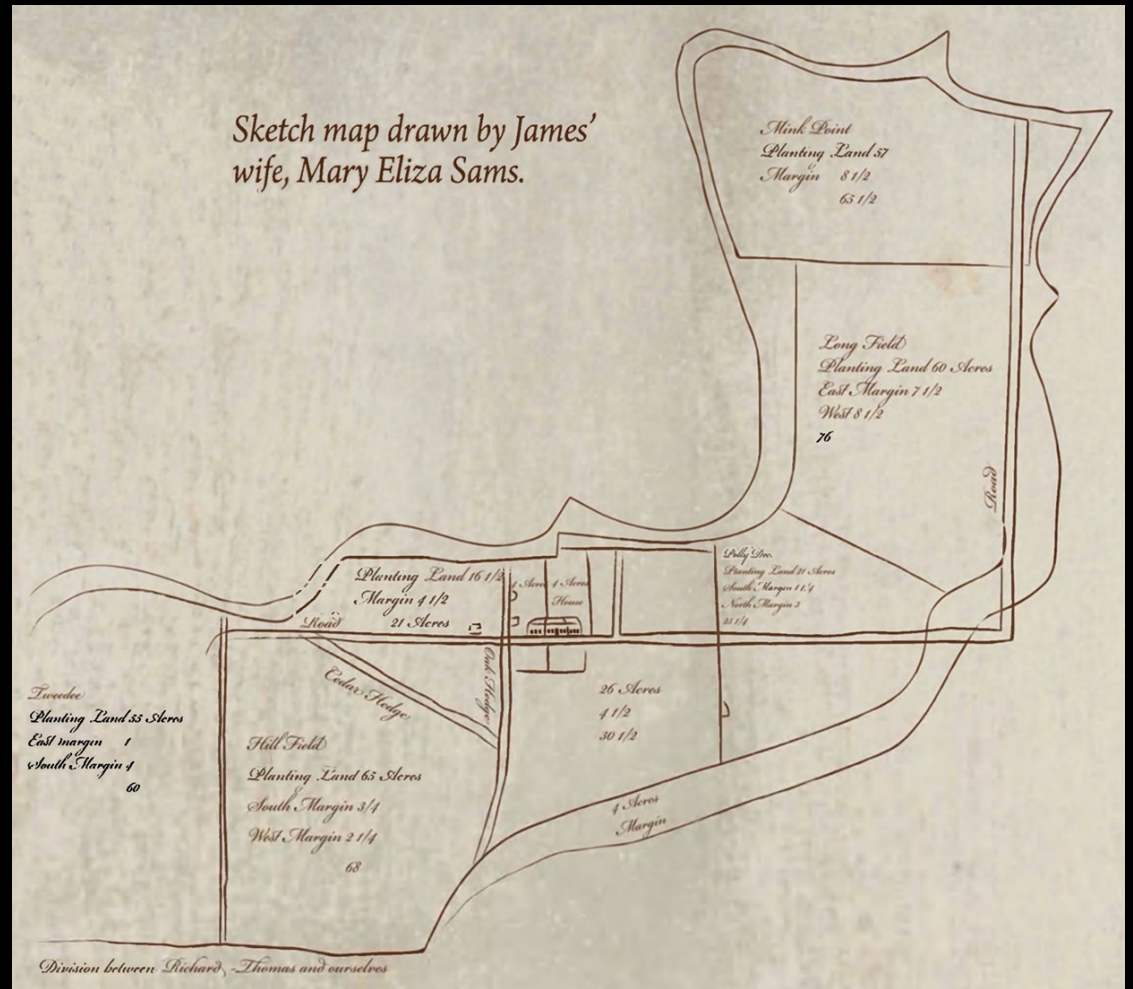 Sketch map drawn by James’
wife, Mary Eliza Sams.
Mink Point
Planting Land 57
Margin 8 1/2
65 1/2
Long Field
Planting Land 60 Acres
East Margin 7 1/2
West 8 1/2
76
Road
Polly Dec.
Planting Land 21 Acres
South Margin 1 1/4
North Margin 3
25 1/4
Planting Land 16 1/2
Margin 4 1/2
21 Acres
4 Acres
4 Acres
House
Road
Cedar Hedge
Oak Hedge
26 Acres
4 1/2
30 1/2
Tweedee
Planting Land 55 Acres
East margin 1
South Margin 4
60
Hill Field
Planting Land 65 Acres
South Margin 3/4
West Margin 2 1/4
68
4 Acres
Margin
Division between Richard, -Thomas and ourselves